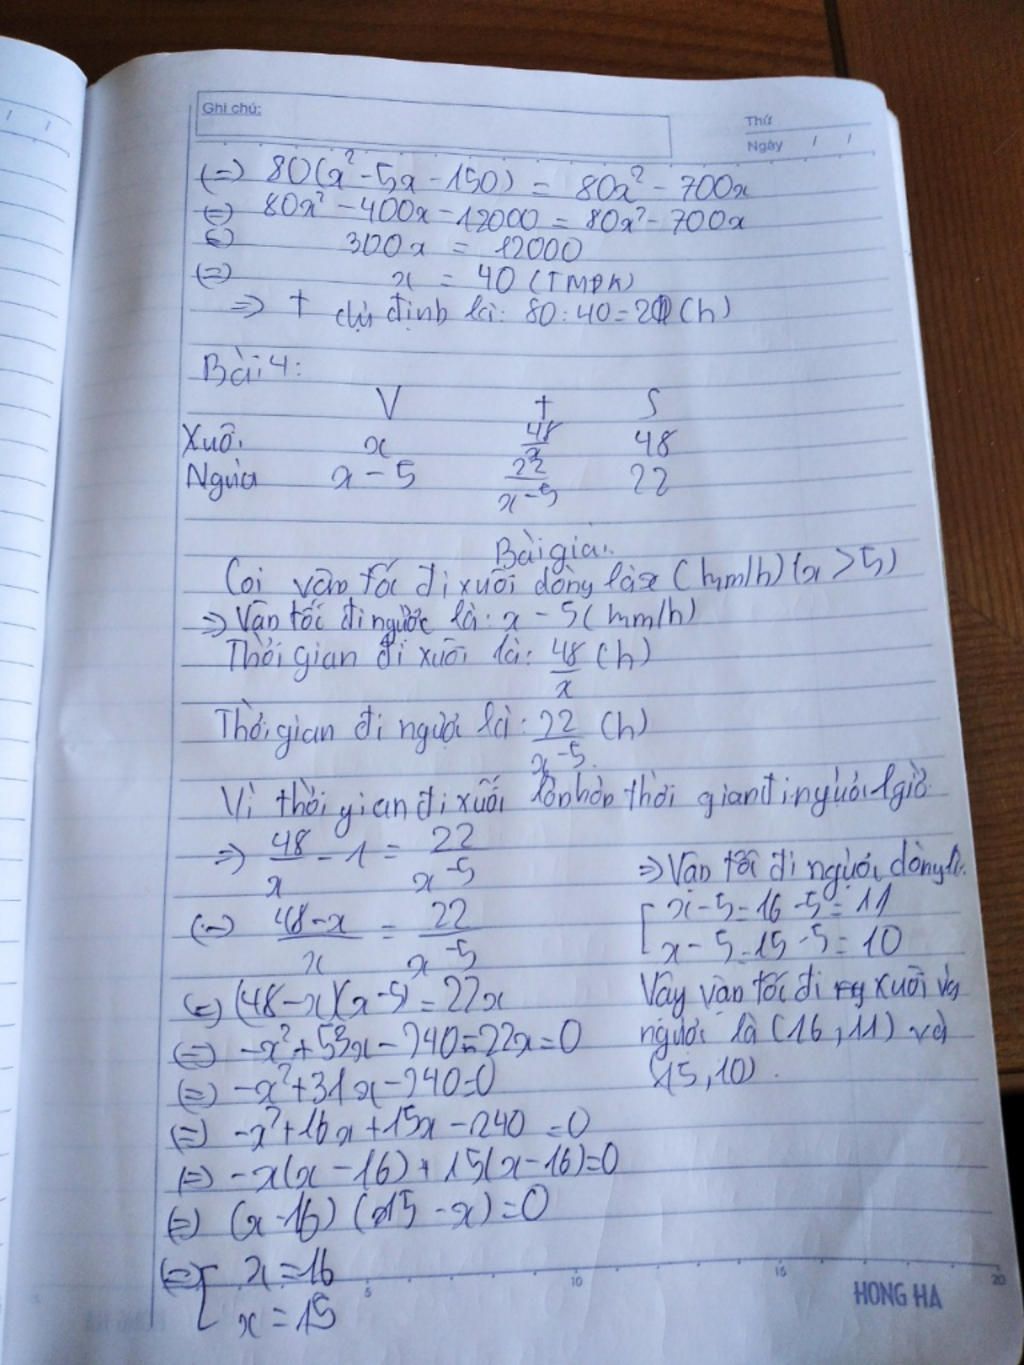 Ghi chú:
Thứ
Ngày / /
(=) 80(x² - 5x - 150) = 80x² - 700x
(=) 80x² - 400x - 12000 = 80x² - 700x
(=) 300x = 12000
(=) x = 40 (TMĐK)
=> t dự định là: 80 : 40 = 2 (h)
Bài 4:
V t S
Xuôi x 48/x 48
Ngược x - 5 22/(x-5) 22
Bài giải
Coi vận tốc đi xuôi dòng là x (km/h) (x > 5)
=> Vận tốc đi ngược là: x - 5 (km/h)
Thời gian đi xuôi là: 48/x (h)
Thời gian đi ngược là: 22/(x-5) (h)
Vì thời gian đi xuôi lớn hơn thời gian đi ngược 1 giờ
=> 48/x - 1 = 22/(x-5)
(=) (48-x)/x = 22/(x-5)
(=) (48-x)(x-5) = 22x
(=) -x² + 53x - 240 - 22x = 0
(=) -x² + 31x - 240 = 0
(=) -x² + 16x + 15x - 240 = 0
(=) -x(x - 16) + 15(x - 16) = 0
(=) (x - 16) (15 - x) = 0
(=) [ x = 16
x = 15
=> Vận tốc đi ngược dòng là:
[ x - 5 = 16 - 5 = 11
x - 5 = 15 - 5 = 10
Vậy vận tốc đi xuôi và
ngược là (16, 11) và
(15, 10).
5 10 15 20
HONG HA